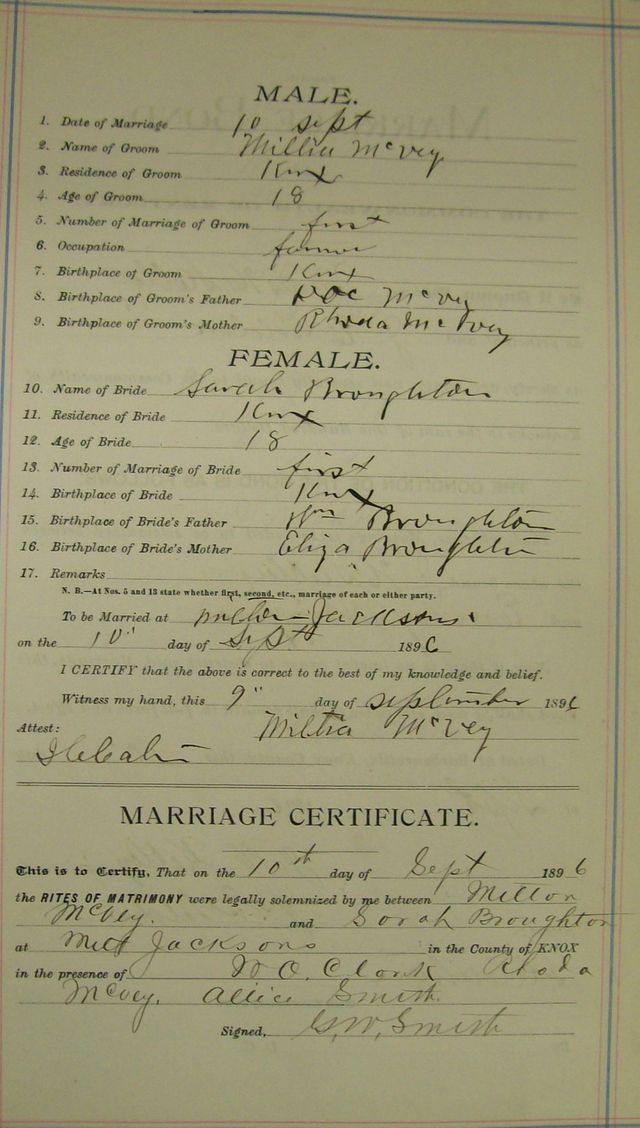 MALE.
1. Date of Marriage 10 Sept
2. Name of Groom Millia McVey
3. Residence of Groom Knx
4. Age of Groom 18
5. Number of Marriage of Groom first
6. Occupation farmer
7. Birthplace of Groom Knx
8. Birthplace of Groom's Father Doc McVey
9. Birthplace of Groom's Mother Rhoda McVey
FEMALE.
10. Name of Bride Sarah Broughton
11. Residence of Bride Knx
12. Age of Bride 18
13. Number of Marriage of Bride first
14. Birthplace of Bride Knx
15. Birthplace of Bride's Father Wm Broughton
16. Birthplace of Bride's Mother Eliza Broughton
17. Remarks
N. B.—At Nos. 5 and 13 state whether first, second, etc., marriage of each or either party.
To be Married at Jacksons
on the 10" day of Sept 1896
I CERTIFY that the above is correct to the best of my knowledge and belief.
Witness my hand, this 9" day of September 1896
Attest: Miltia McVey
MARRIAGE CERTIFICATE.
This is to Certify, That on the 10th day of Sept 1896
the RITES OF MATRIMONY were legally solemnized by me between Milton
McVey. and Sarah Broughton
at Milt Jacksons in the County of KNOX
in the presence of W. O. Clark Rhoda
McVey. Allice Smith.
Signed, G. W. Smith